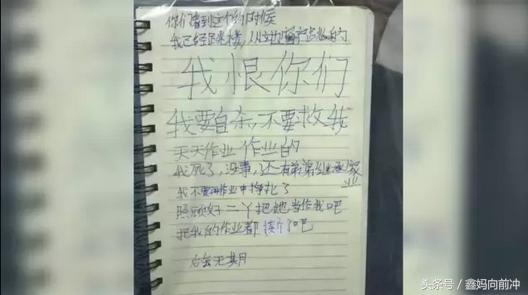 你们看到这个的时候
我已经跳楼，从
我恨你们
我要自杀，不要救我
天天作业作业的
我死了，没事，还有弟弟
我不要再作业中挣扎了
照顾好二丫把她当作我吧
把我的作业都 烧了吧
后会无期
头条号 / 鑫妈向前冲